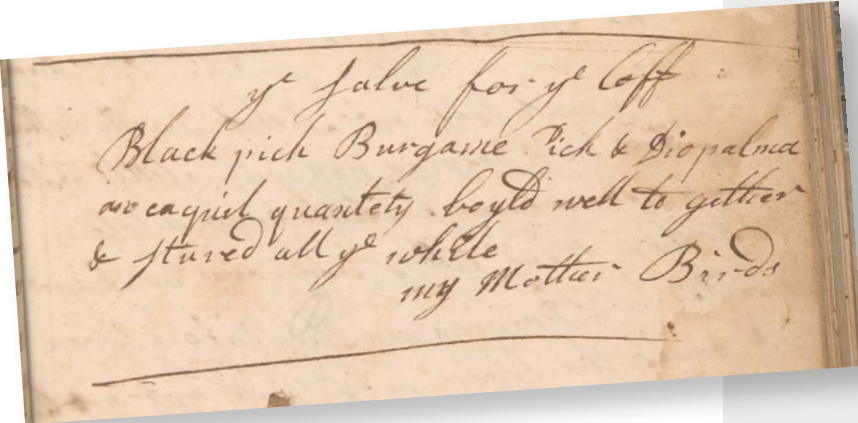 ye salve for ye Coff
Black pich Burgame Pich & Diopalma
an eaquil quantety boyld well to gether
& stured all ye while
my Mother Birds